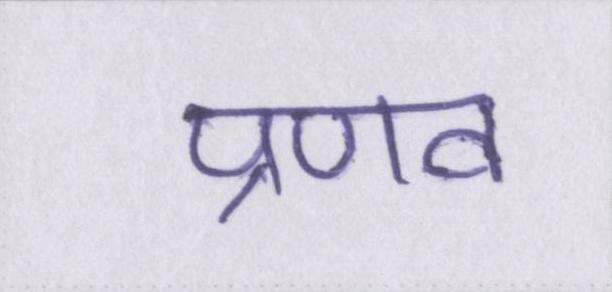 प्रणव